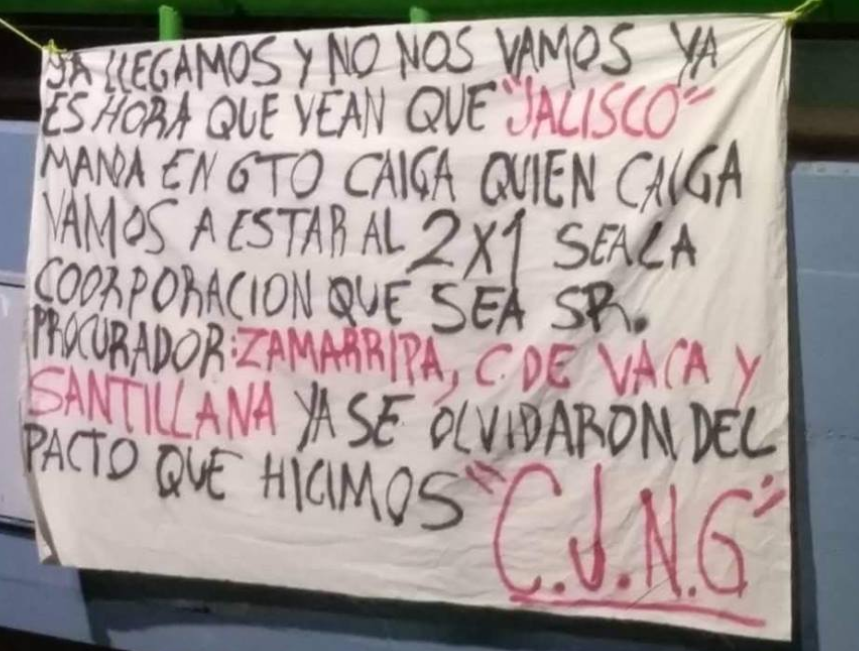 YA LLEGAMOS Y NO NOS VAMOS YA
ES HORA QUE VEAN QUE "JALISCO"
MANDA EN GTO CAIGA QUIEN CAIGA
VAMOS A ESTAR AL 2X1 SEA LA
COORPORACION QUE SEA SR.
PROCURADOR: ZAMARRIPA, C. DE VACA Y
SANTILLANA YA SE OLVIDARON DEL
PACTO QUE HICIMOS "C.J.N.G"